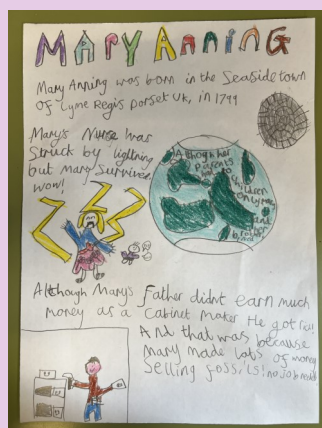 MARY ANNING
Mary Anning was born in the Seaside town
of Lyme Regis Dorset Uk, in 1799
Marys Nurse was
Struck by lightning
but Mary Survived
wow!
Although her
parents
had 10
children
only Mary
and
brother
had
Although Mary's father didnt earn much
money as a Cabinet maker He got rich!
And that was because
Mary made lots of money
selling fossils! no job needed